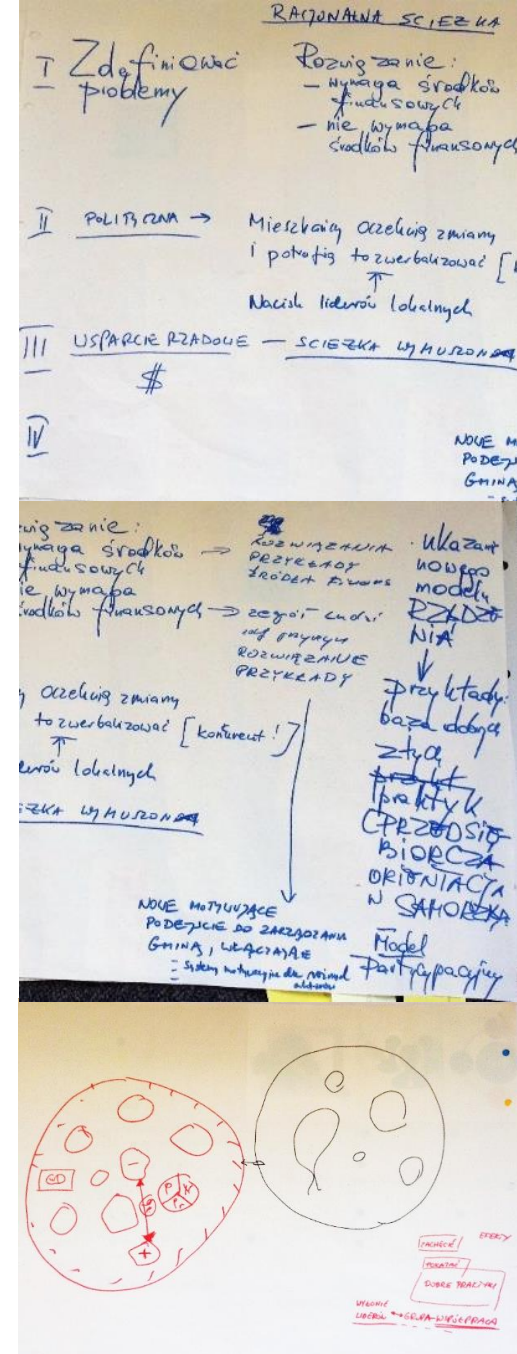 RACJONALNA SCIEZKA
I Zdefiniować
problemy
Rozwiązanie:
– wymaga środków
finansowych
– nie wymaga
środków finansowych
II POLITYCZNA →
Mieszkańcy oczekują zmiany
i potrafią to zwerbalizować [
Nacisk liderów lokalnych
III WSPARCIE RZĄDOWE – SCIEZKA WYMUSZONA
$
IV
NOWE M
PODEJ
GMINĄ
wiązanie:
wymaga środków →
finansowych
nie wymaga
środków finansowych →
ROZWIĄZANIA
PRZYKŁADY
ŹRÓDŁA FINANS
zespół ludzi
ROZWIĄZANIE
PRZYKŁADY
oczekują zmiany
to zwerbalizować [konkurent!]
liderów lokalnych
IEZKA WYMUSZONA
NOWE MOTYWUJĄCE
PODEJŚCIE DO ZARZĄDZANIA
GMINĄ, WŁĄCZAJĄCE
– System motywacyjny dla
aktorów
ukazanie
nowego
modelu
RZĄDZE
NIA
przykłady:
baza dobrych
złych
praktyk
(PRZEDSIĘ-
BIORCZA
ORIENTACJA
W SAMORZĄ
Model
Partycypacyjny
–
+
P
EFEKTY
ZACHĘCIĆ
POKAZAĆ
DOBRE PRAKTYKI
WYŁONIĆ
LIDERÓW GRUPA WSPÓŁPRACA